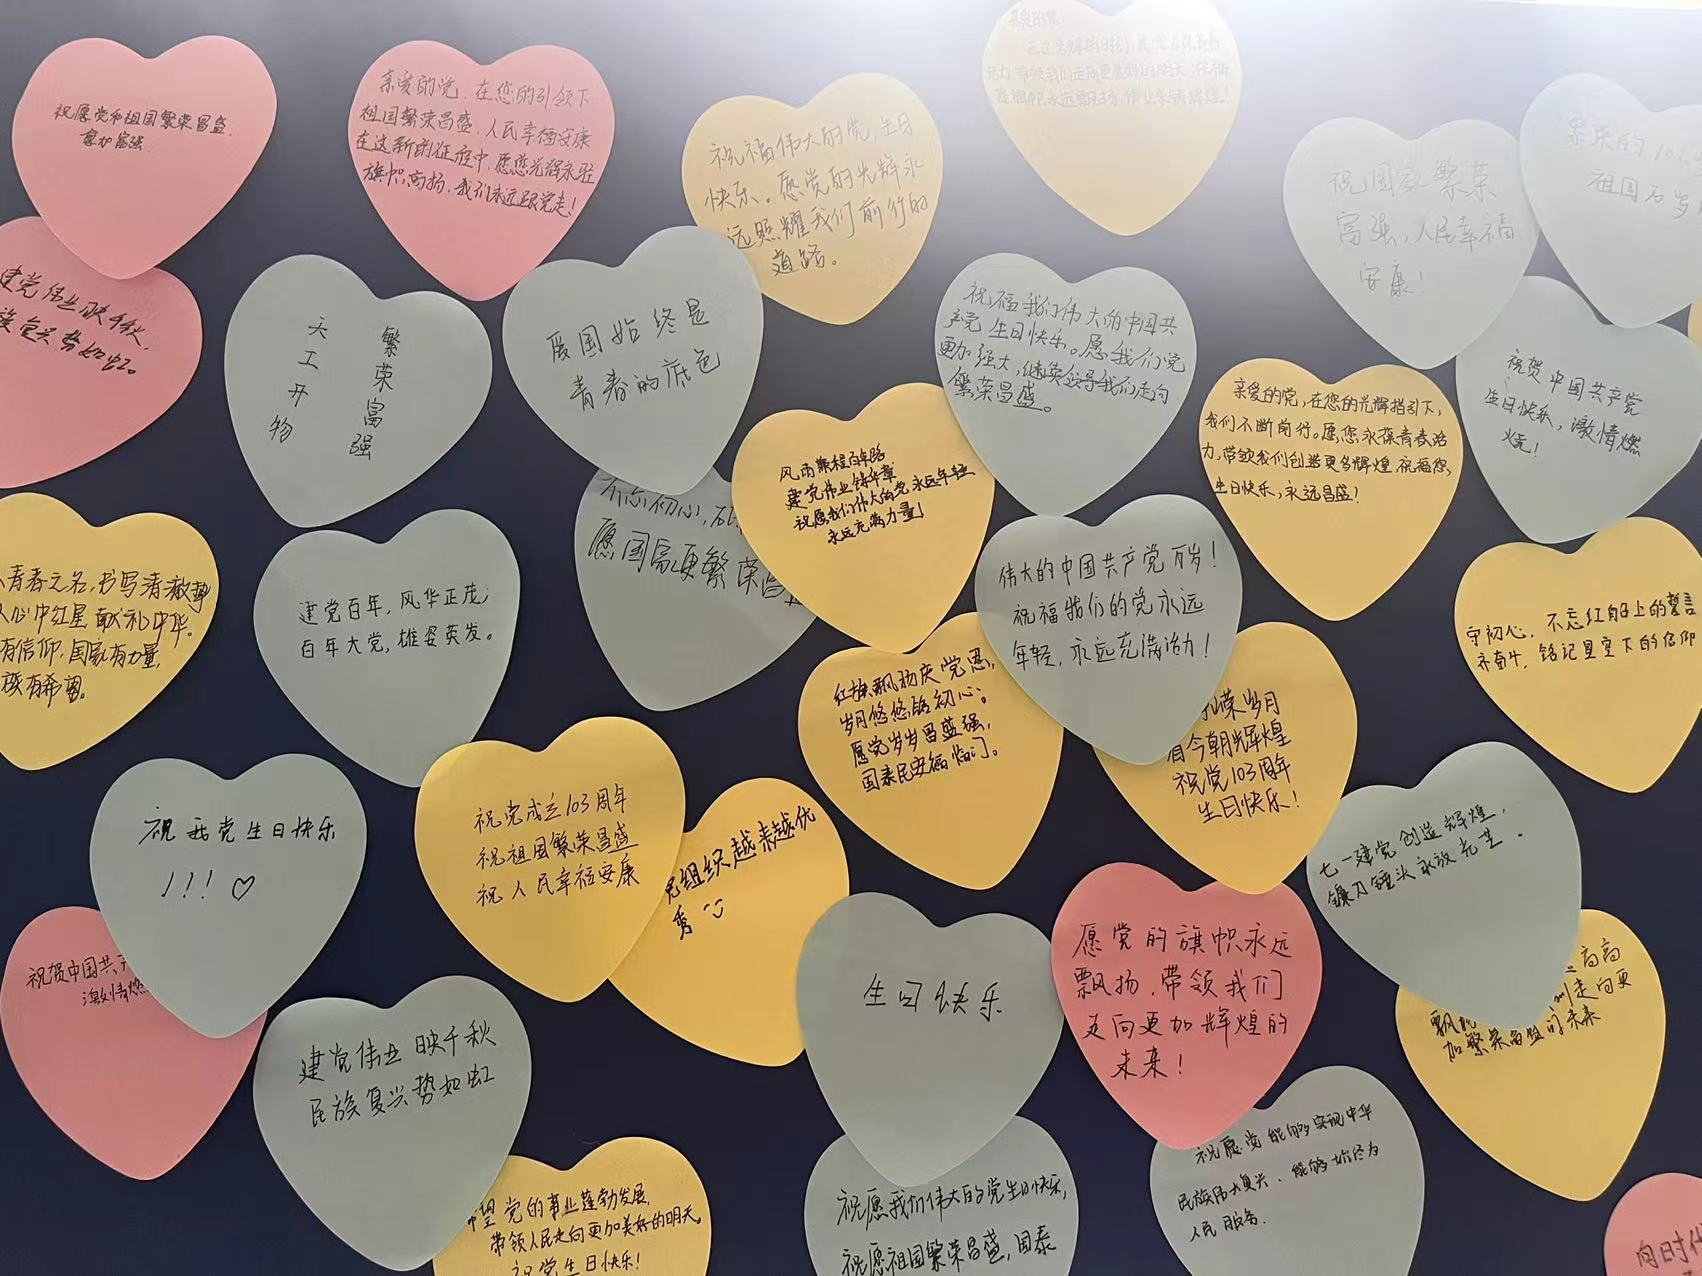 祝愿党和祖国繁荣昌盛，
愈加富强
亲爱的党，在您的引领下
祖国繁荣昌盛，人民幸福安康
在这新的征程中，愿您光辉永驻
旗帜高扬，我们永远跟党走！
祝福伟大的党，生日
快乐。愿党的光辉永
远照耀我们前行的
道路。
祝国家繁荣
富强，人民幸福
安康！
祖国万岁
建党伟业映千秋，
复兴势如虹。
繁荣富强
天工开物
爱国始终是
青春的底色
祝福我们伟大的中国共
产党生日快乐。愿我们党
更加强大，继续领导我们走向
繁荣昌盛。
祝贺中国共产党
生日快乐，激情燃
烧！
亲爱的党，在您的光辉指引下，
我们不断前行。愿您永葆青春活
力，带领我们创造更多辉煌 祝福您，
生日快乐，永远昌盛！
风雨兼程百年路
建党伟业铸华章
祝愿我们伟大的党永远年轻
永远充满力量！
不忘初心，
愿国家更繁荣
青春之名，书写清澈挚
心中红星献礼中华。
有信仰，国家有力量，
族有希望。
建党百年，风华正茂；
百年大党，雄姿英发。
伟大的中国共产党万岁！
祝福我们的党永远
年轻，永远充满活力！
守初心，不忘红船上的誓言
铭记星空下的信仰
红旗飘扬庆党恩，
岁月悠悠铭初心。
愿党岁岁昌盛强，
国泰民安福临门。
荣岁月
看今朝辉煌
祝党103周年
生日快乐！
祝我党生日快乐
！！！♡
祝党成立103周年
祝祖国繁荣昌盛
祝人民幸福安康
党组织越来越优
秀
七一建党创造辉煌，
镰刀锤头永放光芒。
祝贺中国共产
激情燃
建党伟业映千秋
民族复兴势如虹
生日快乐
愿党的旗帜永远
飘扬，带领我们
走向更加辉煌的
未来！
高高
走向更
加繁荣昌盛的未来
希望党的事业蓬勃发展，
带领人民走向更加美好的明天。
祝党生日快乐！
祝愿我们伟大的党生日快乐，
祝愿祖国繁荣昌盛，国泰
祝愿党能够实现中华
民族伟大复兴、能够始终为
人民服务.
向时代